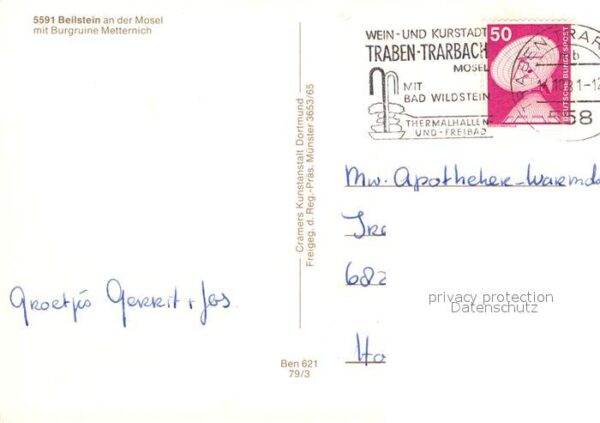 5591 Beilstein an der Mosel
mit Burgruine Metternich
WEIN- UND KURSTADT
TRABEN-TRARBACH
MOSEL
MIT
BAD WILDSTEIN
THERMALHALLEN
UND-FREIBAD
50
DEUTSCHE BUNDESPOST
TRABEN-TRAR
b
1-12
58
Cramers Kunstanstalt Dortmund
Freigeg. d. Reg.-Präs. Münster 3653/65
Mw. Apotheker-Warmd
682
privacy protection
Datenschutz
Groetjes Gerrit + Jos.
Ben 621
79/3